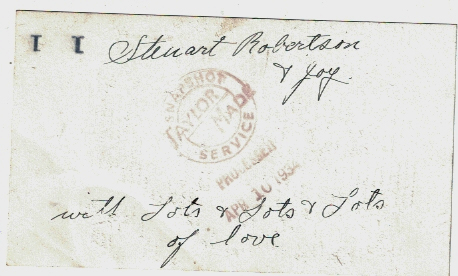 11
Steuart Robertson
& Joy.
SNAPSHOT
TAYLOR MADE
SERVICE
PROCESSED
APR 10 1934
with Lots & Lots & Lots
of love